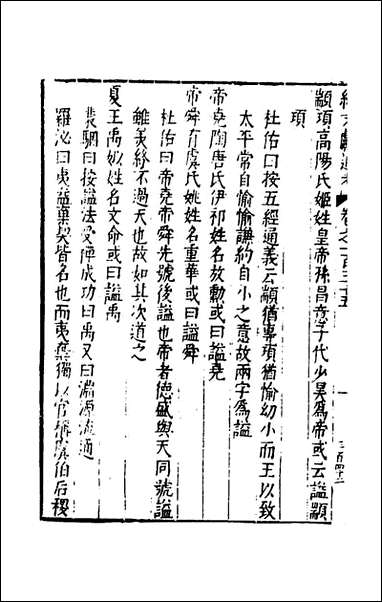 續文獻通考 卷之一百三十五
顓頊高陽氏姬姓皇帝孫昌意子代少昊爲帝或云謚顓
頊
杜佑曰按五經通義云顓猶專頊猶愉幼小而王以致
太平常自愉愉謙約自小之意故兩字爲謚
帝堯陶唐氏伊祁姓名放勳或曰謚堯
帝舜有虞氏姚姓名重華或曰謚舜
杜佑曰帝堯帝舜先號後謚也帝者德盛與天同號謚
雖美終不過天也故如其次道之
夏王禹姒姓名文命或曰謚禹
裴駰曰按謚法受禪成功曰禹又曰淵源流通
羅泌曰夷益棄契皆名也而夷棄獨以官稱虞伯后稷